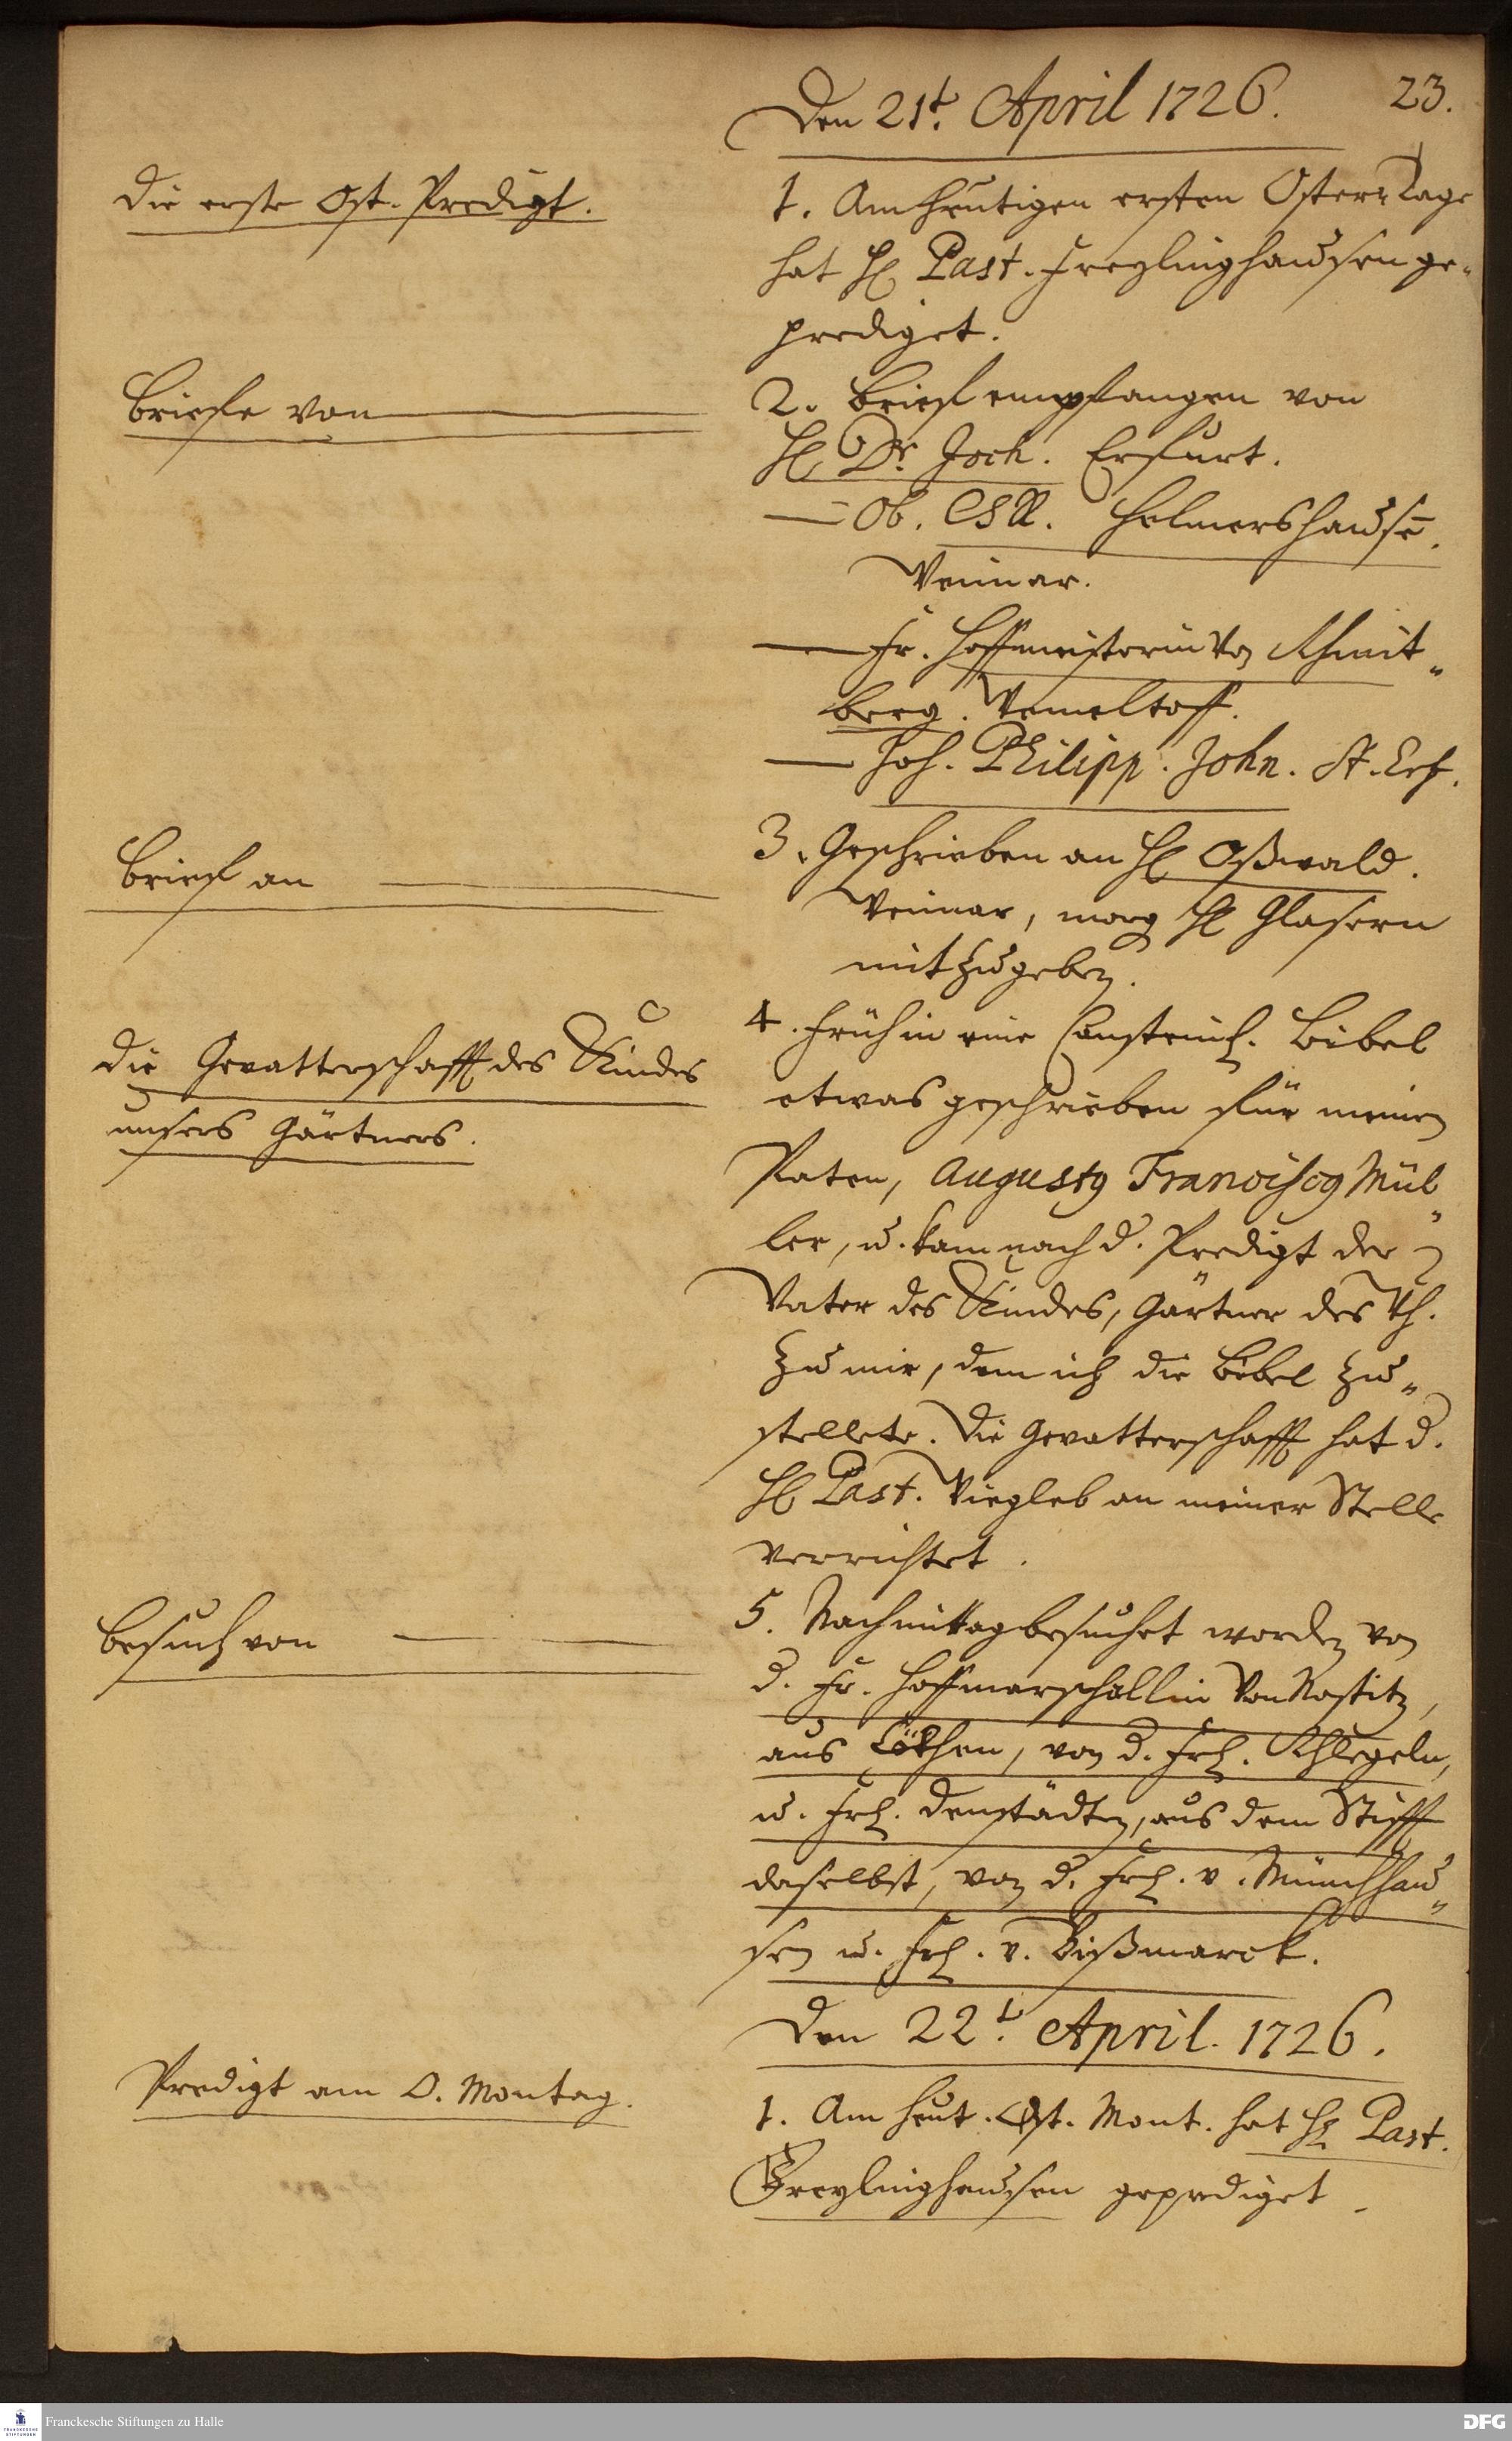 23.
Den 21t. April 1726.
Die erste Ost. Predigt.
1. Am heutigen ersten Oster-Tage
hat H. Past. Freylinghausen ge-
prediget.
Briefe von
2. Brief empfangen von
H. Dr. Joch. Erfurt.
— Ob. CR. Helmershausē.
Weimar.
— Fr. Hoffmeisterin von
berg.
— Joh. Philipp. John. St. Erf.
Brief an
3. Geschrieben an H. Oßwald.
Weimar, morg H. Glasern
mitzugeben.
Die Gevatterschafft des Kindes
unsers Gärtners.
4. Früh in eine Cansteinis. Bibel
etwas geschrieben für meinen
Paten, Augustq Franciscq Mül„
ler, u. kam nach d. Predigt der
Vater des Kindes, Gärtner des
zu mir, dem ich die Bibel zu„
stellete. Die Gevatterschafft hat d.
H. Past. Wiegleb an meiner Stelle
verrichtet.
Besuch von
5. Nachmittag besuchet worden von
d. Fr. Hoffmarschallin von Nostitz,
aus Cöthen, von d. Frl. Schlegeln,
u. Frl. Denstädten, aus dem Stifft
daselbst, von d. Frl. v. Münchhau„
sen u. Frl. v. Bißmarck.
Den 22t. April. 1726.
Predigt am O. Montag.
1. Am heut. Ost. Mont. hat H. Past.
Freylinghausen geprediget.
Franckesche Stiftungen zu Halle
FRANCKESCHE
STIFTUNGEN
DFG